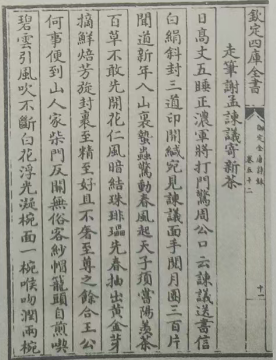 欽定四庫全書
走筆謝孟諫議寄新茶
日髙丈五睡正濃軍將打門驚周公口云諫議送書信
白絹斜封三道印開緘宛見諫議面手閱月團三百片
聞道新年入山裏蟄蟲驚動春風起天子須嘗陽羨茶
百草不敢先開花仁風暗結珠琲瓃先春抽出黄金芽
摘鮮焙芳旋封裹至精至好且不奢至尊之餘合王公
何事便到山人家柴門反關無俗客紗帽籠頭自煎喫
碧雲引風吹不斷白花浮光凝椀面一椀喉吻潤兩椀